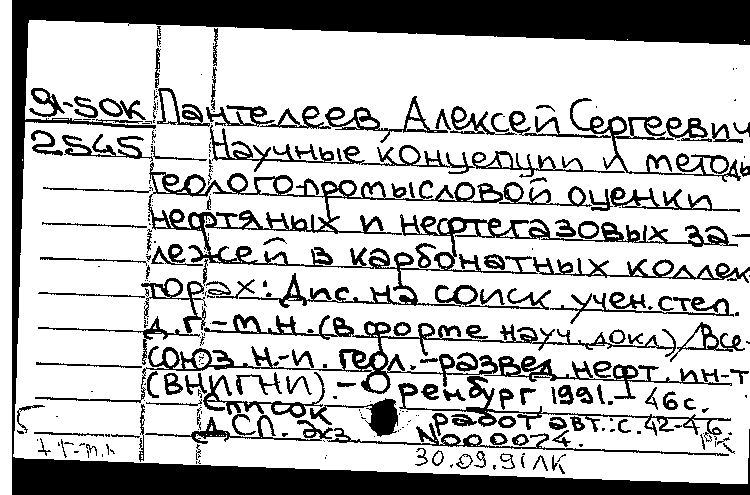 91-50к Пантелеев, Алексей Сергеевич
2545 Научные концепции и методы
геолого-промысловой оценки
нефтяных и нефтегазовых за-
лежей в карбонатных коллек
торах: Дис. на соиск. учен. степ.
д.г.-м.н. (в форме науч. докл.)/Все-
союз. н.-и. геол.-развед. нефт. ин-т
(ВНИГНИ). - Оренбург, 1991. - 46с.
Список работ авт.: с. 42-46
ДСП. Экз. N000024.
5
30.09.91 ЛК